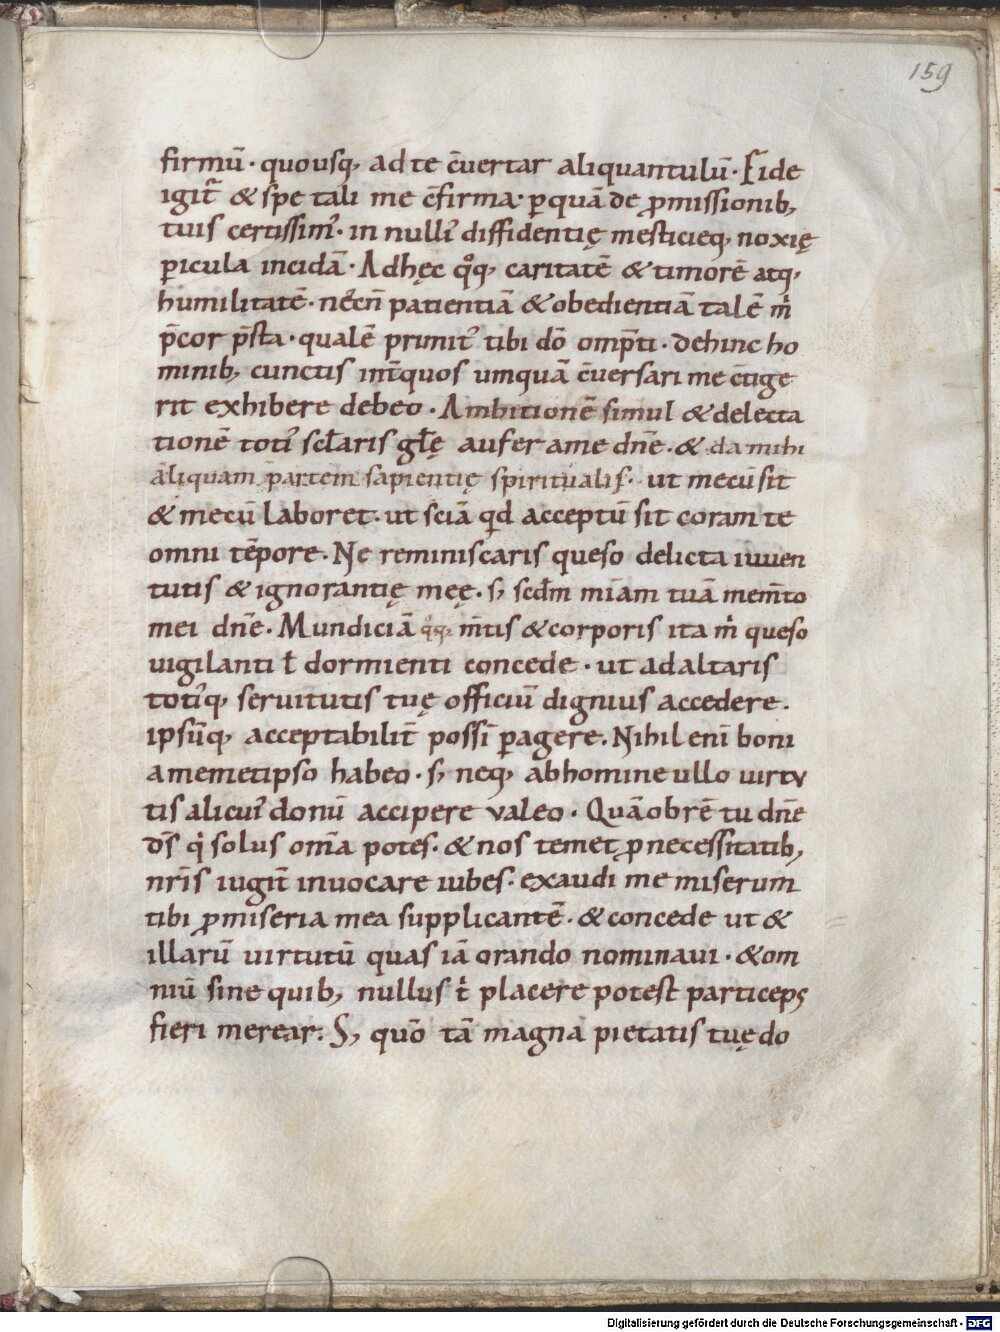 159
firmū · quousq, ad te c̄uertar aliquantulū · Fide
igit᷑ & spe tali me c̄firma · ꝑquā de ꝓmissionib,
tuis certissim᾿ · in null᾿ diffidentię mesticieq, noxię
ꝑicula incidā · Adhęc q̊q, caritatē & timorē atq,
humilitatē · nēcn̄ patientiā & obedientiā talē m̍
p̄cor p̄sta · qualē primit᾿ tibi dō omp̄ti · dehinc ho
minib, cunctis int̄quos umquā c̄uersari me c̄tige
rit exhibere debeo · Ambitionē simul & delecta
tionē toti᾿ scl̄aris gl̄ę aufer ame dn̄e · & da mihi
aliquam partem sapientię spiritualis · ut mecū sit
& mecū laboret · ut sciā qd̄ acceptū sit coram te
omni tēpore · Ne reminiscaris queso delicta iuuen
tutis & ignorantię meę · s, scd̄m miām tuā mem̄to
mei dn̄e · Mundiciā q̊q, m̄tis & corporis ita m̍ queso
uigilanti ł dormienti concede · ut ad altaris
toti᾿q, seruitutis tuę officiū dignius accedere ·
ipsūq, acceptabilit̄ possī ꝑagere. Nihil enī boni
amemetipso habeo · s, neq, abhomine ullo uirtu
tis alicui᾿ donū accipere valeo · Quāobrē tu dn̄e
d̄s q̍ solus om̄a potes · & nos temet ꝓ necessitatib,
nr̄is iugit̄ inuocare iubes · exaudi me miserum
tibi ꝓ miseria mea supplicantē · & concede ut &
illarū uirtutū quas iā orando nominaui · & om
niū sine quib, nullus t̍ placere potest particeps
fieri merear. S, quō tā magna pietatis tuę do
Digitalisierung gefördert durch die Deutsche Forschungsgemeinschaft - DFG